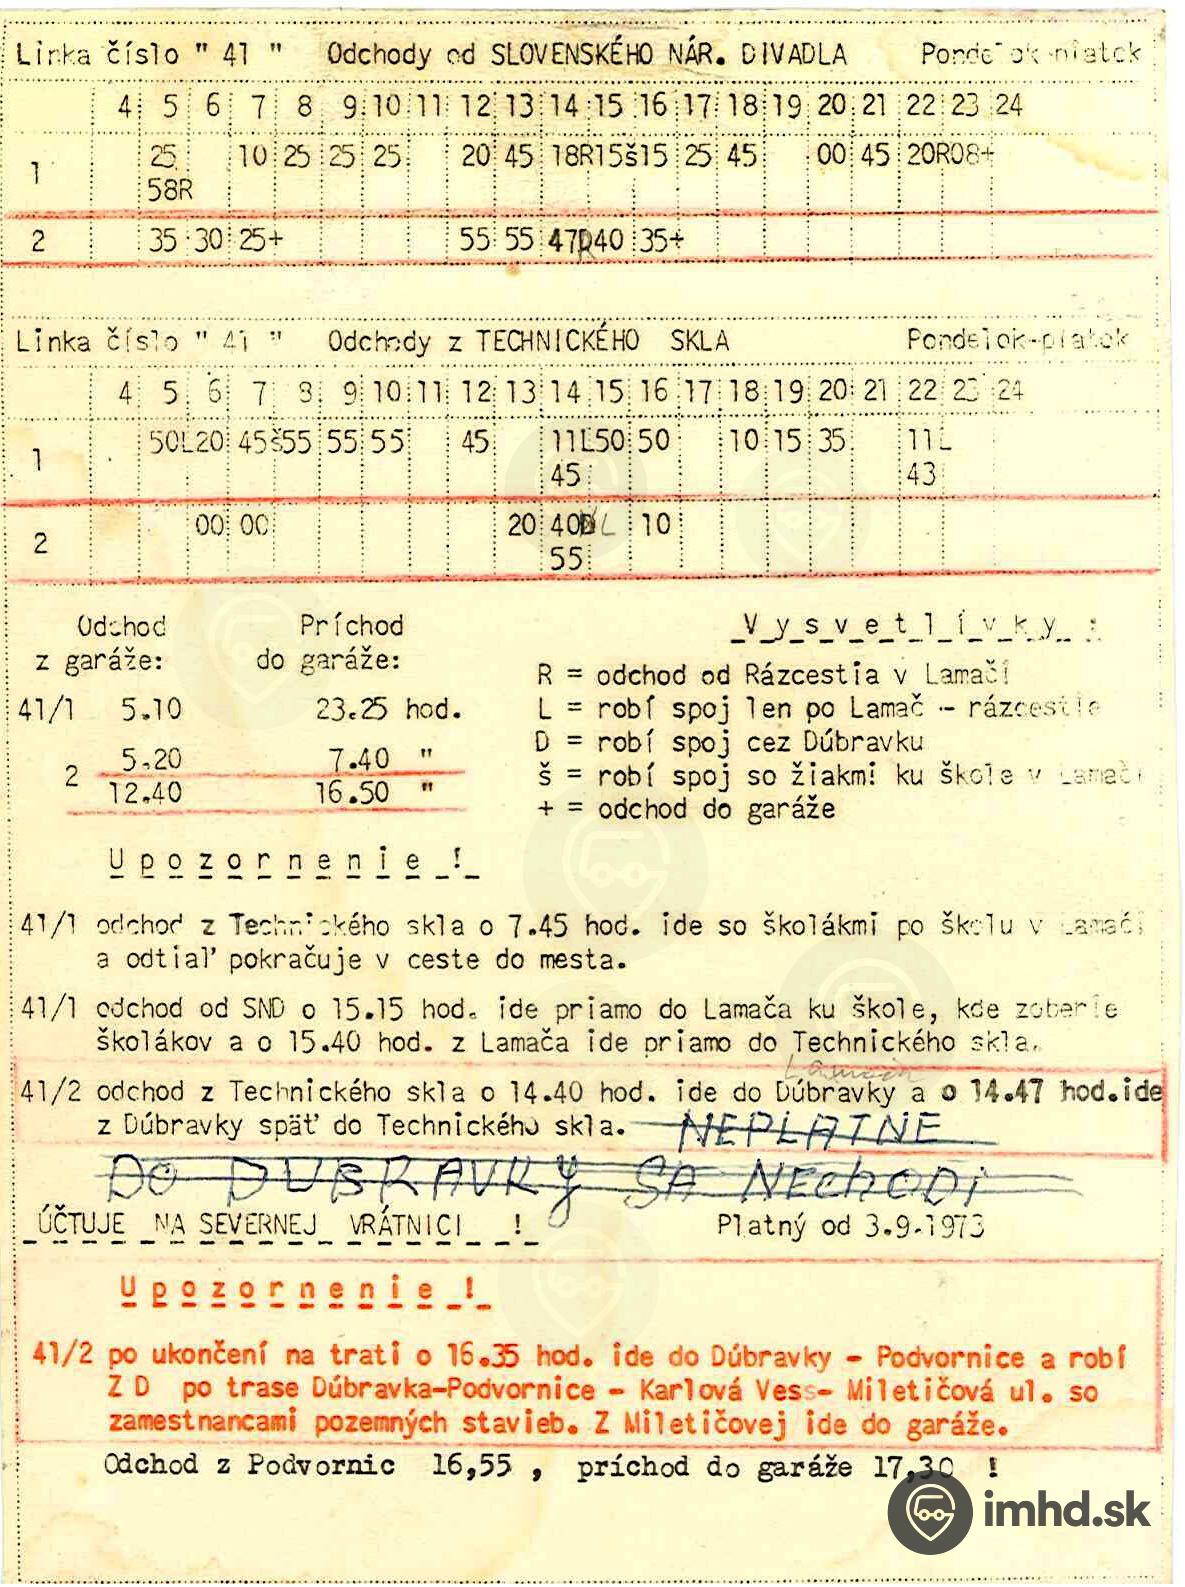 Linka číslo " 41 " Odchody od SLOVENSKÉHO NÁR. DIVADLA Pondelok-piatok
4 5 6 7 8 9 10 11 12 13 14 15 16 17 18 19 20 21 22 23 24
1 25 10 25 25 25 20 45 18R 15š 15 25 45 00 45 20R 08+
58R
2 35 30 25+ 55 55 47R 40 35+
Linka číslo " 41 " Odchody z TECHNICKÉHO SKLA Pondelok-piatok
4 5 6 7 8 9 10 11 12 13 14 15 16 17 18 19 20 21 22 23 24
1 50L 20 45š 55 55 55 45 11L 50 50 10 15 35 11L
45 43
2 00 00 20 40 L 10
55
Odchod Príchod V y s v e t l í v k y :
z garáže: do garáže:
R = odchod od Rázcestia v Lamači
41/1 5.10 23.25 hod. L = robí spoj len po Lamač - rázcestie
D = robí spoj cez Dúbravku
2 5.20 7.40 "
š = robí spoj so žiakmi ku škole v Lamači
12.40 16.50 "
+ = odchod do garáže
U p o z o r n e n i e !
41/1 odchod z Technického skla o 7.45 hod. ide so školákmi po školu v Lamači
a odtiaľ pokračuje v ceste do mesta.
41/1 odchod od SND o 15.15 hod. ide priamo do Lamača ku škole, kde zoberie
školákov a o 15.40 hod. z Lamača ide priamo do Technického skla.
41/2 odchod z Technického skla o 14.40 hod. ide do Dúbravky a o 14.47 hod.ide
z Dúbravky späť do Technického skla. NEPLATNE
DO DUBRAVKY SA NECHODI
ÚČTUJE NA SEVERNEJ VRÁTNICI ! Platný od 3.9.1973
U p o z o r n e n i e !
41/2 po ukončení na trati o 16.35 hod. ide do Dúbravky - Podvornice a robí
Z D po trase Dúbravka-Podvornice - Karlová Vess- Miletičová ul. so
zamestnancami pozemných stavieb. Z Miletičovej ide do garáže.
Odchod z Podvornic 16,55 , príchod do garáže 17,30 !
imhd.sk